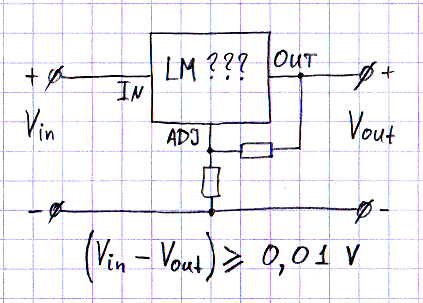 LM ???
OUT
+
+
IN
Vin
ADJ
Vout
-
-
(Vin - Vout) ⩾ 0,01 V